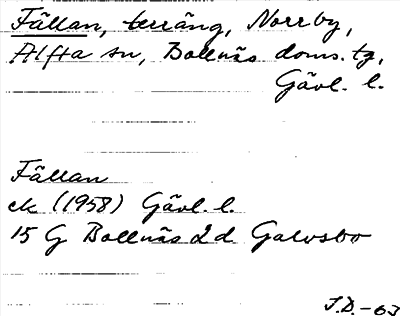 Fällan, terräng, Norrby,
Alfta sn, Bollnäs doms. tg,
Gävl. l.
Fällan
ek (1958) Gävl. l.
15 G Bollnäs 2 d Galvsbo
J.D.-63